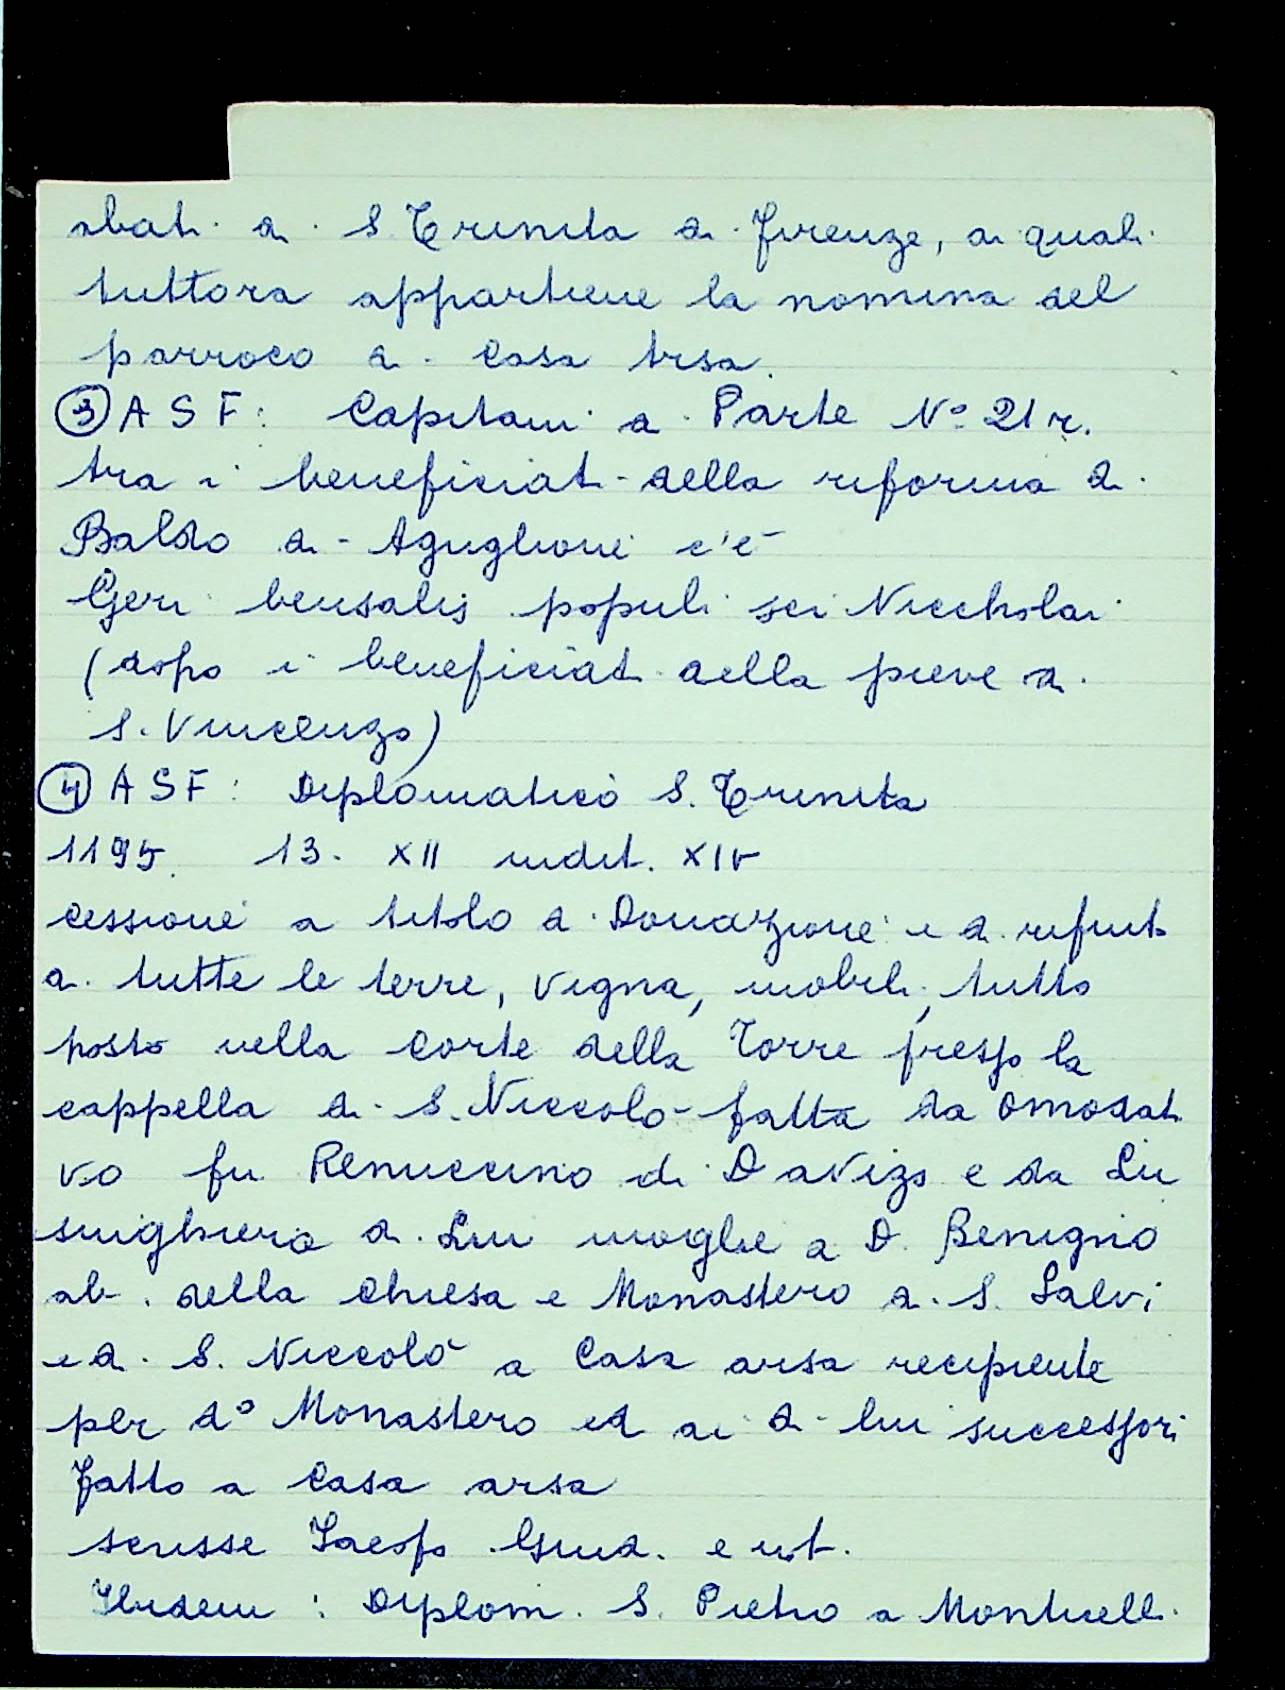 abati di S. Trinita di Firenze, ai quali
tuttora appartiene la nomina del
parroco di Casa Arsa.
③ A S F: Capitani di Parte N° 21 r.
tra i beneficiati della riforma di
Baldo di Aguglione c'è
Geri bensalis populi sci Niccholai
(dopo i beneficiati della pieve di
S. Vincenzo)
④ A S F: Diplomatico S. Trinita
1195 13. XII indit. XIV
cessione a titolo di Donazione e di rifiuto
di tutte le terre, vigna, mobili, tutto
posto nella Corte della Torre presso la
cappella di S. Niccolò fatta da Omodat
vo fu Renuccino di Davizo e da Lu
singhiera di Lui moglie a D. Benigno
ab. della Chiesa e Monastero di S. Salvi
e di S. Niccolò a Casa arsa recipiente
per do Monastero ed ai di lui successori
fatto a Casa arsa
scrisse Iacopo Giud. e not.
Ibidem: Diplom. S. Pietro a Monticelli